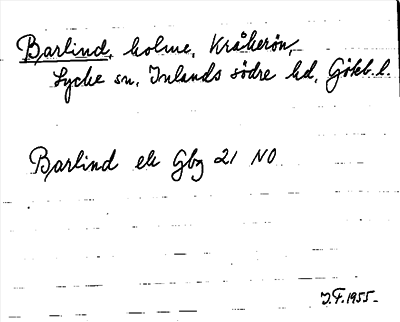 Barlind, holme, Kråkerön,
Lycke sn, Inlands södre hd, Göteb. l.
Barlind ek Gbg 21 NO
J.F. 1955